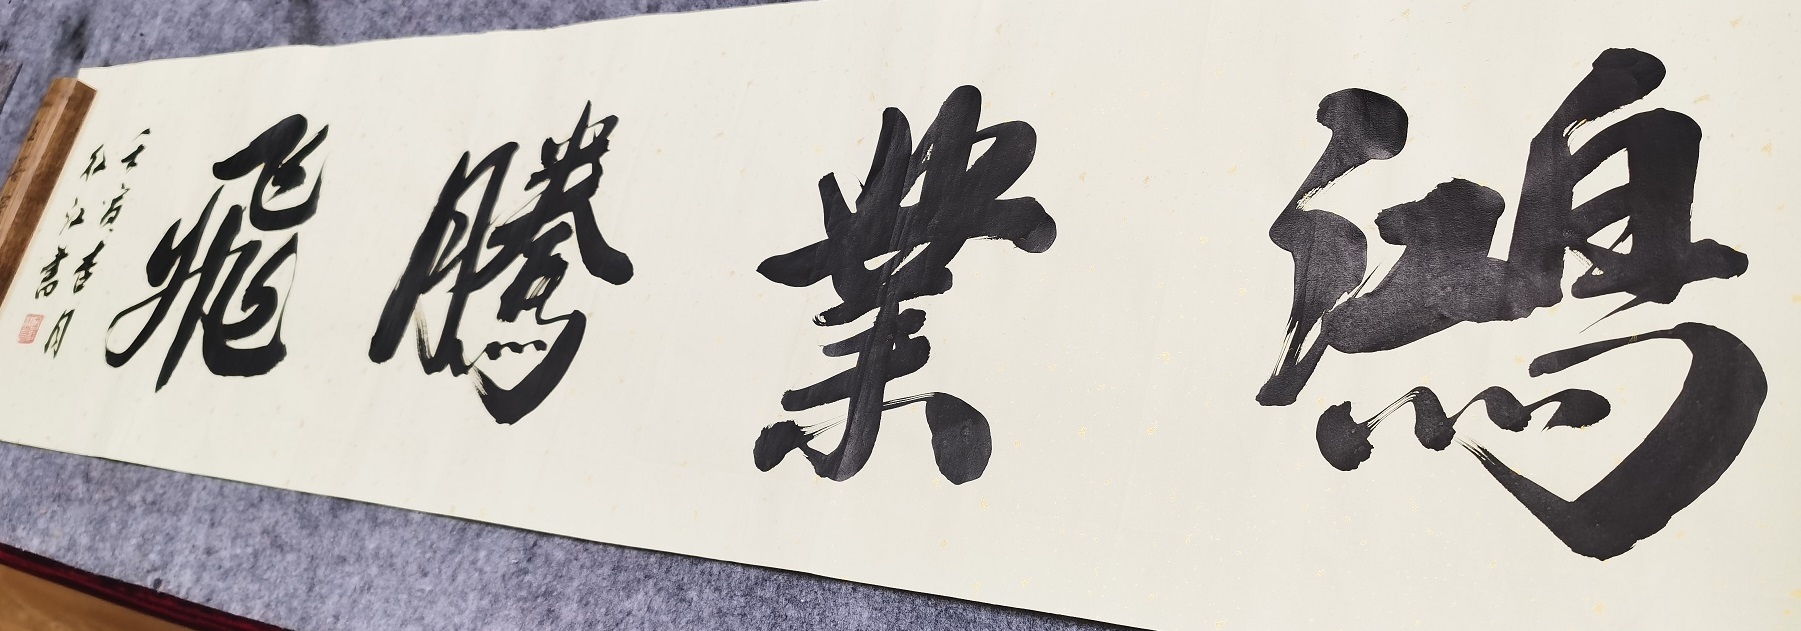 鴻業騰飛
壬寅杏月
江書